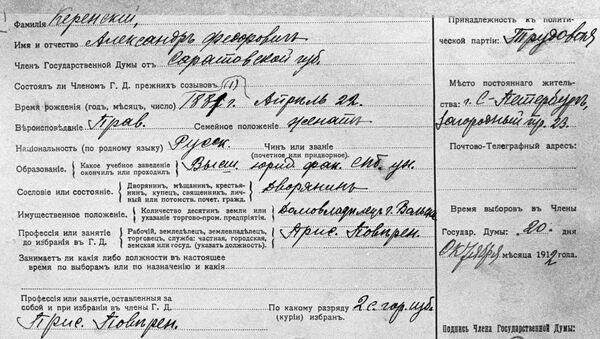 Фамилія Керенскій,
Имя и отчество Александръ Федоровичъ
Членъ Государственной Думы отъ Саратовской губ.
Состоялъ ли Членомъ Г. Д. прежнихъ созывовъ (1)
Время рожденія (годъ, мѣсяцъ, число) 1881 г. Апрѣль 22.
Вѣроисповѣданіе Прав. Семейное положеніе женатъ
Національность (по родному языку) Русск. Чинъ или званіе (почетное или придворное).
Образованіе. Какое учебное заведеніе окончилъ или проходилъ Высш. юрид. фак. Спб. ун.
Сословіе или состояніе. Дворянинъ, мѣщанинъ, крестьянинъ, купецъ, священникъ, личный или потомств. почет. гражд. Дворянинъ
Имущественное положеніе. Количество десятинъ земли или указаніе торгово-пром. предпріятія. Домовладѣлецъ г. Вольска
Профессія или занятіе до избранія въ Г. Д. Рабочій, земледѣлецъ, землевладѣлецъ, торговецъ, служба: частная, городская, земская или госуд. (указать должность). Прис. Повѣрен.
Занимаетъ ли какія либо должности въ настоящее
время по выборамъ или по назначенію и какія
Профессія или занятіе, оставленныя за
собой и при избраніи въ члены Г. Д.
Прис. Повѣрен.
По какому разряду
(куріи) избранъ. 2 с. гор. изб.
Принадлежность къ полити-
ческой партіи: Трудовая
Мѣсто постояннаго житель-
ства: г. С-Петербургъ,
Загородный пр. 23.
Почтово-Телеграфный адресъ:
Время выборовъ въ Члены
Государ. Думы: 20. дня
Октября мѣсяца 1912 года.
Подпись Члена Государственной Думы: